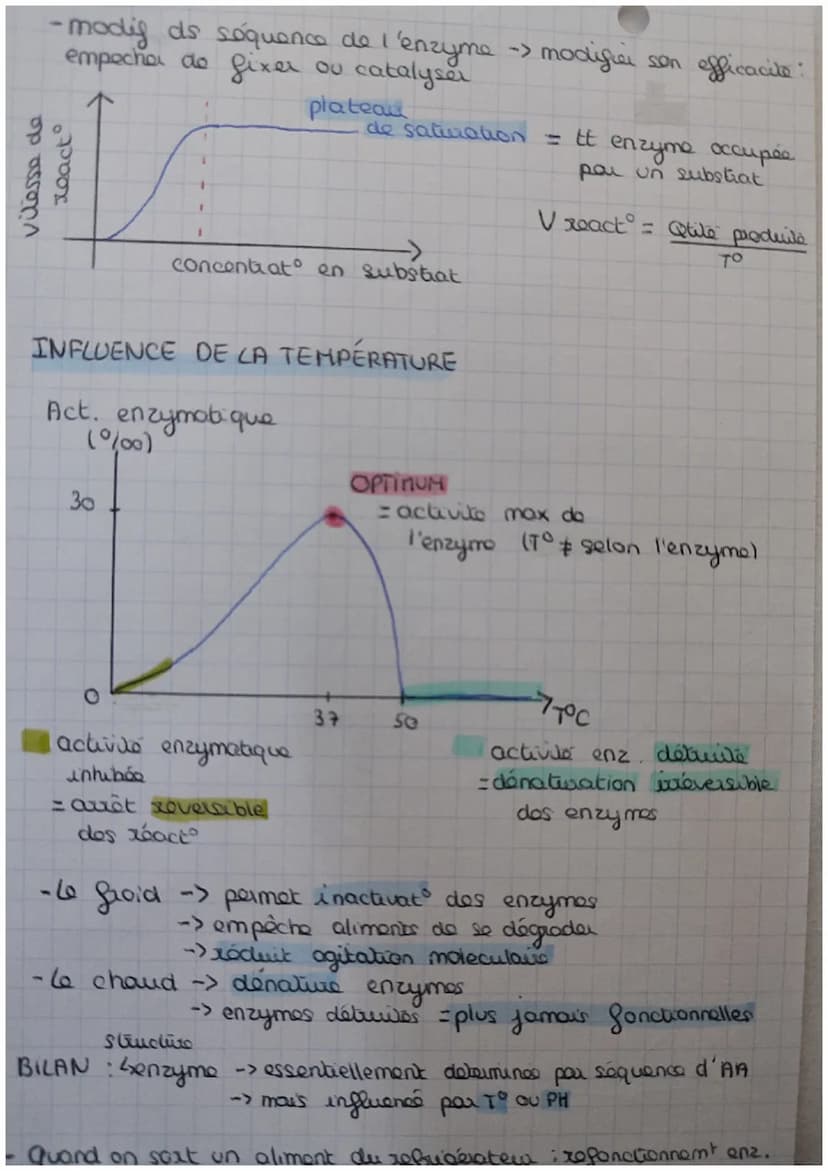 - modif ds séquence de l'enzyme -> modifier son efficacité :
empecher de fixer ou catalyser
plateau
de saturation = tt enzyme occupée
par un substrat
vitesse de
react°
V react° = Qtité produite
T°
concentrat° en substrat
INFLUENCE DE LA TEMPÉRATURE
Act. enzymatique
(°/oo)
30
OPTIMUM
= activité max de
l'enzyme (T° ≠ selon l'enzyme)
0
37
50
T°C
activité enzymatique
inhibée
= arrêt reversible
des réact°
activité enz. détruite
= dénaturation irréversible
des enzymes
- Le froid -> permet inactivat° des enzymes
-> empêche aliments de se dégrader
-> réduit agitation moleculaire
- Le chaud -> dénature enzymes
-> enzymes détruites = plus jamais fonctionnelles
structure
BILAN : enzyme -> essentiellement determinée par séquence d'AA
-> mais influencé par T° ou PH
- Quand on sort un aliment du refrigérateur : refonctionnemt enz.